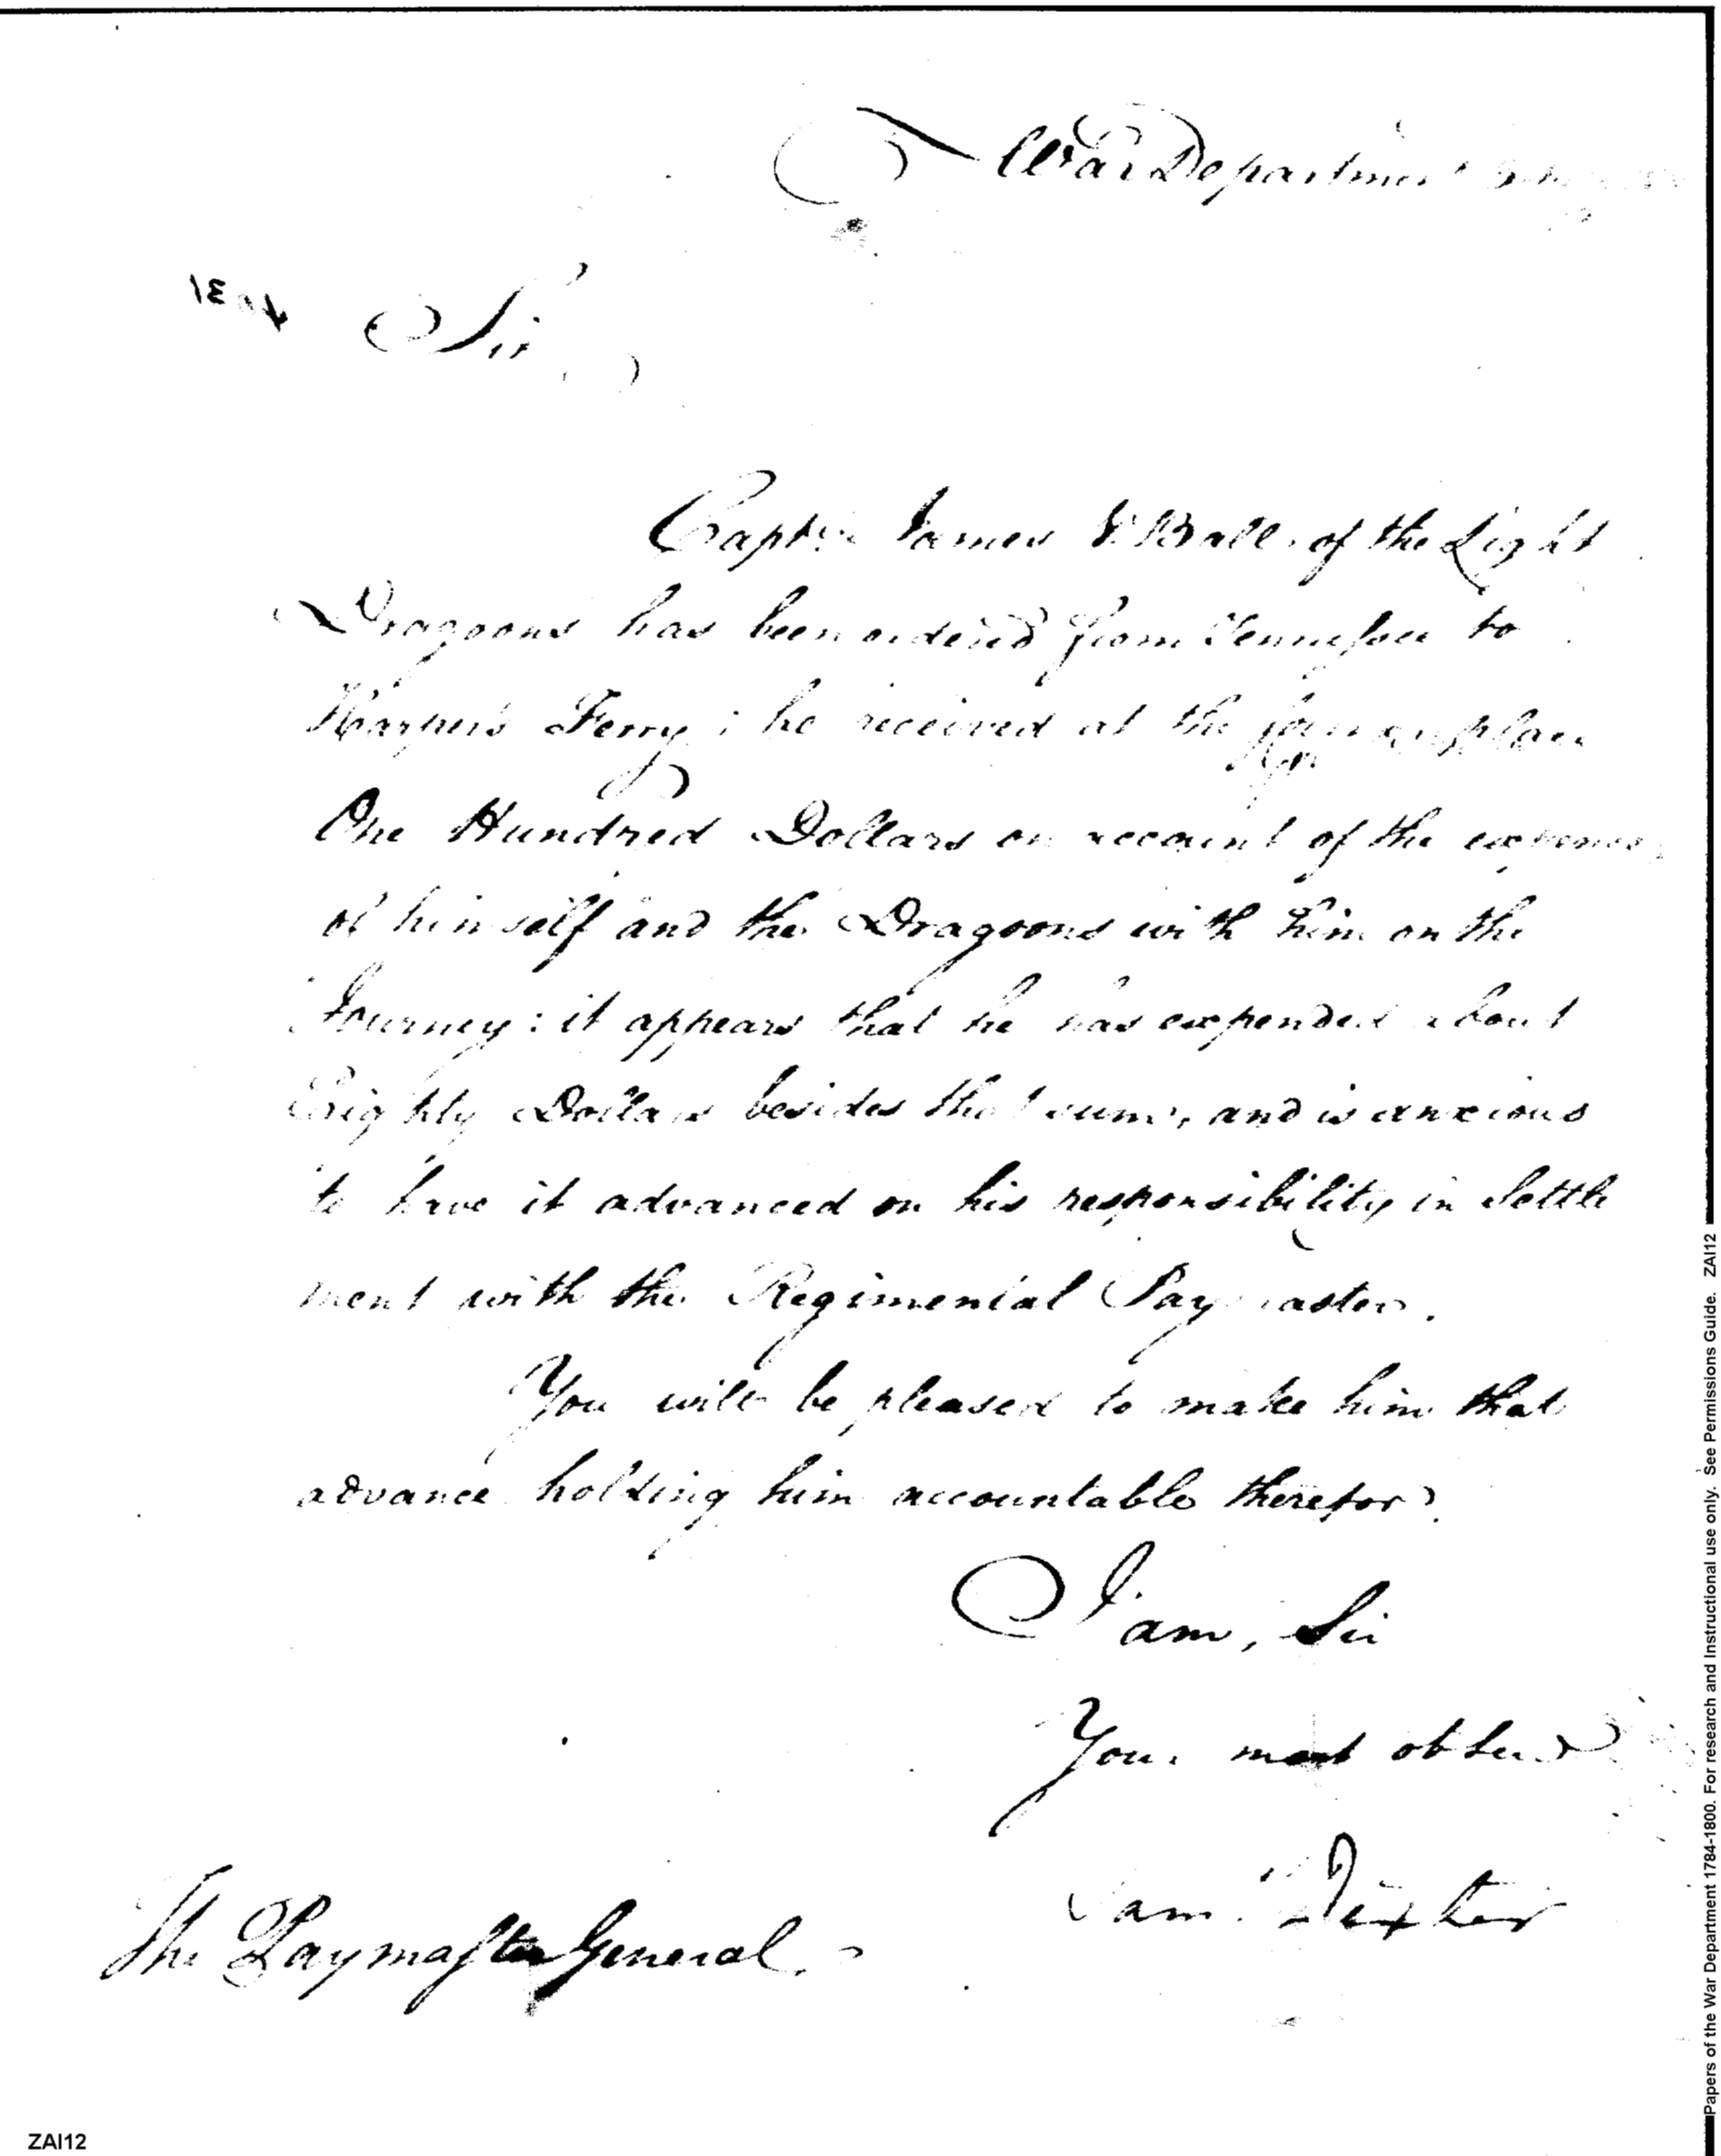 War Department
Sir,
Captn. James V. Ball. of the Light
Dragoons has been ordered from Tennessee to
Harper's Ferry; he received at the former place
One Hundred Dollars on account of the expences
of himself and the Dragoons with him on the
Journey: it appears that he has expended about
Eighty Dollars besides that sum, and is anxious
to have it advanced on his responsibility in Settle
ment with the Regimental Paymaster.
You will be pleased to make him that
advance holding him accountable therefor.
I am, Sir
Your most obed
Sam. Dexter
The Paymaster General.
ZAI12
Papers of the War Department 1784-1800. For research and Instructional use only. See Permissions Guide. ZAI12